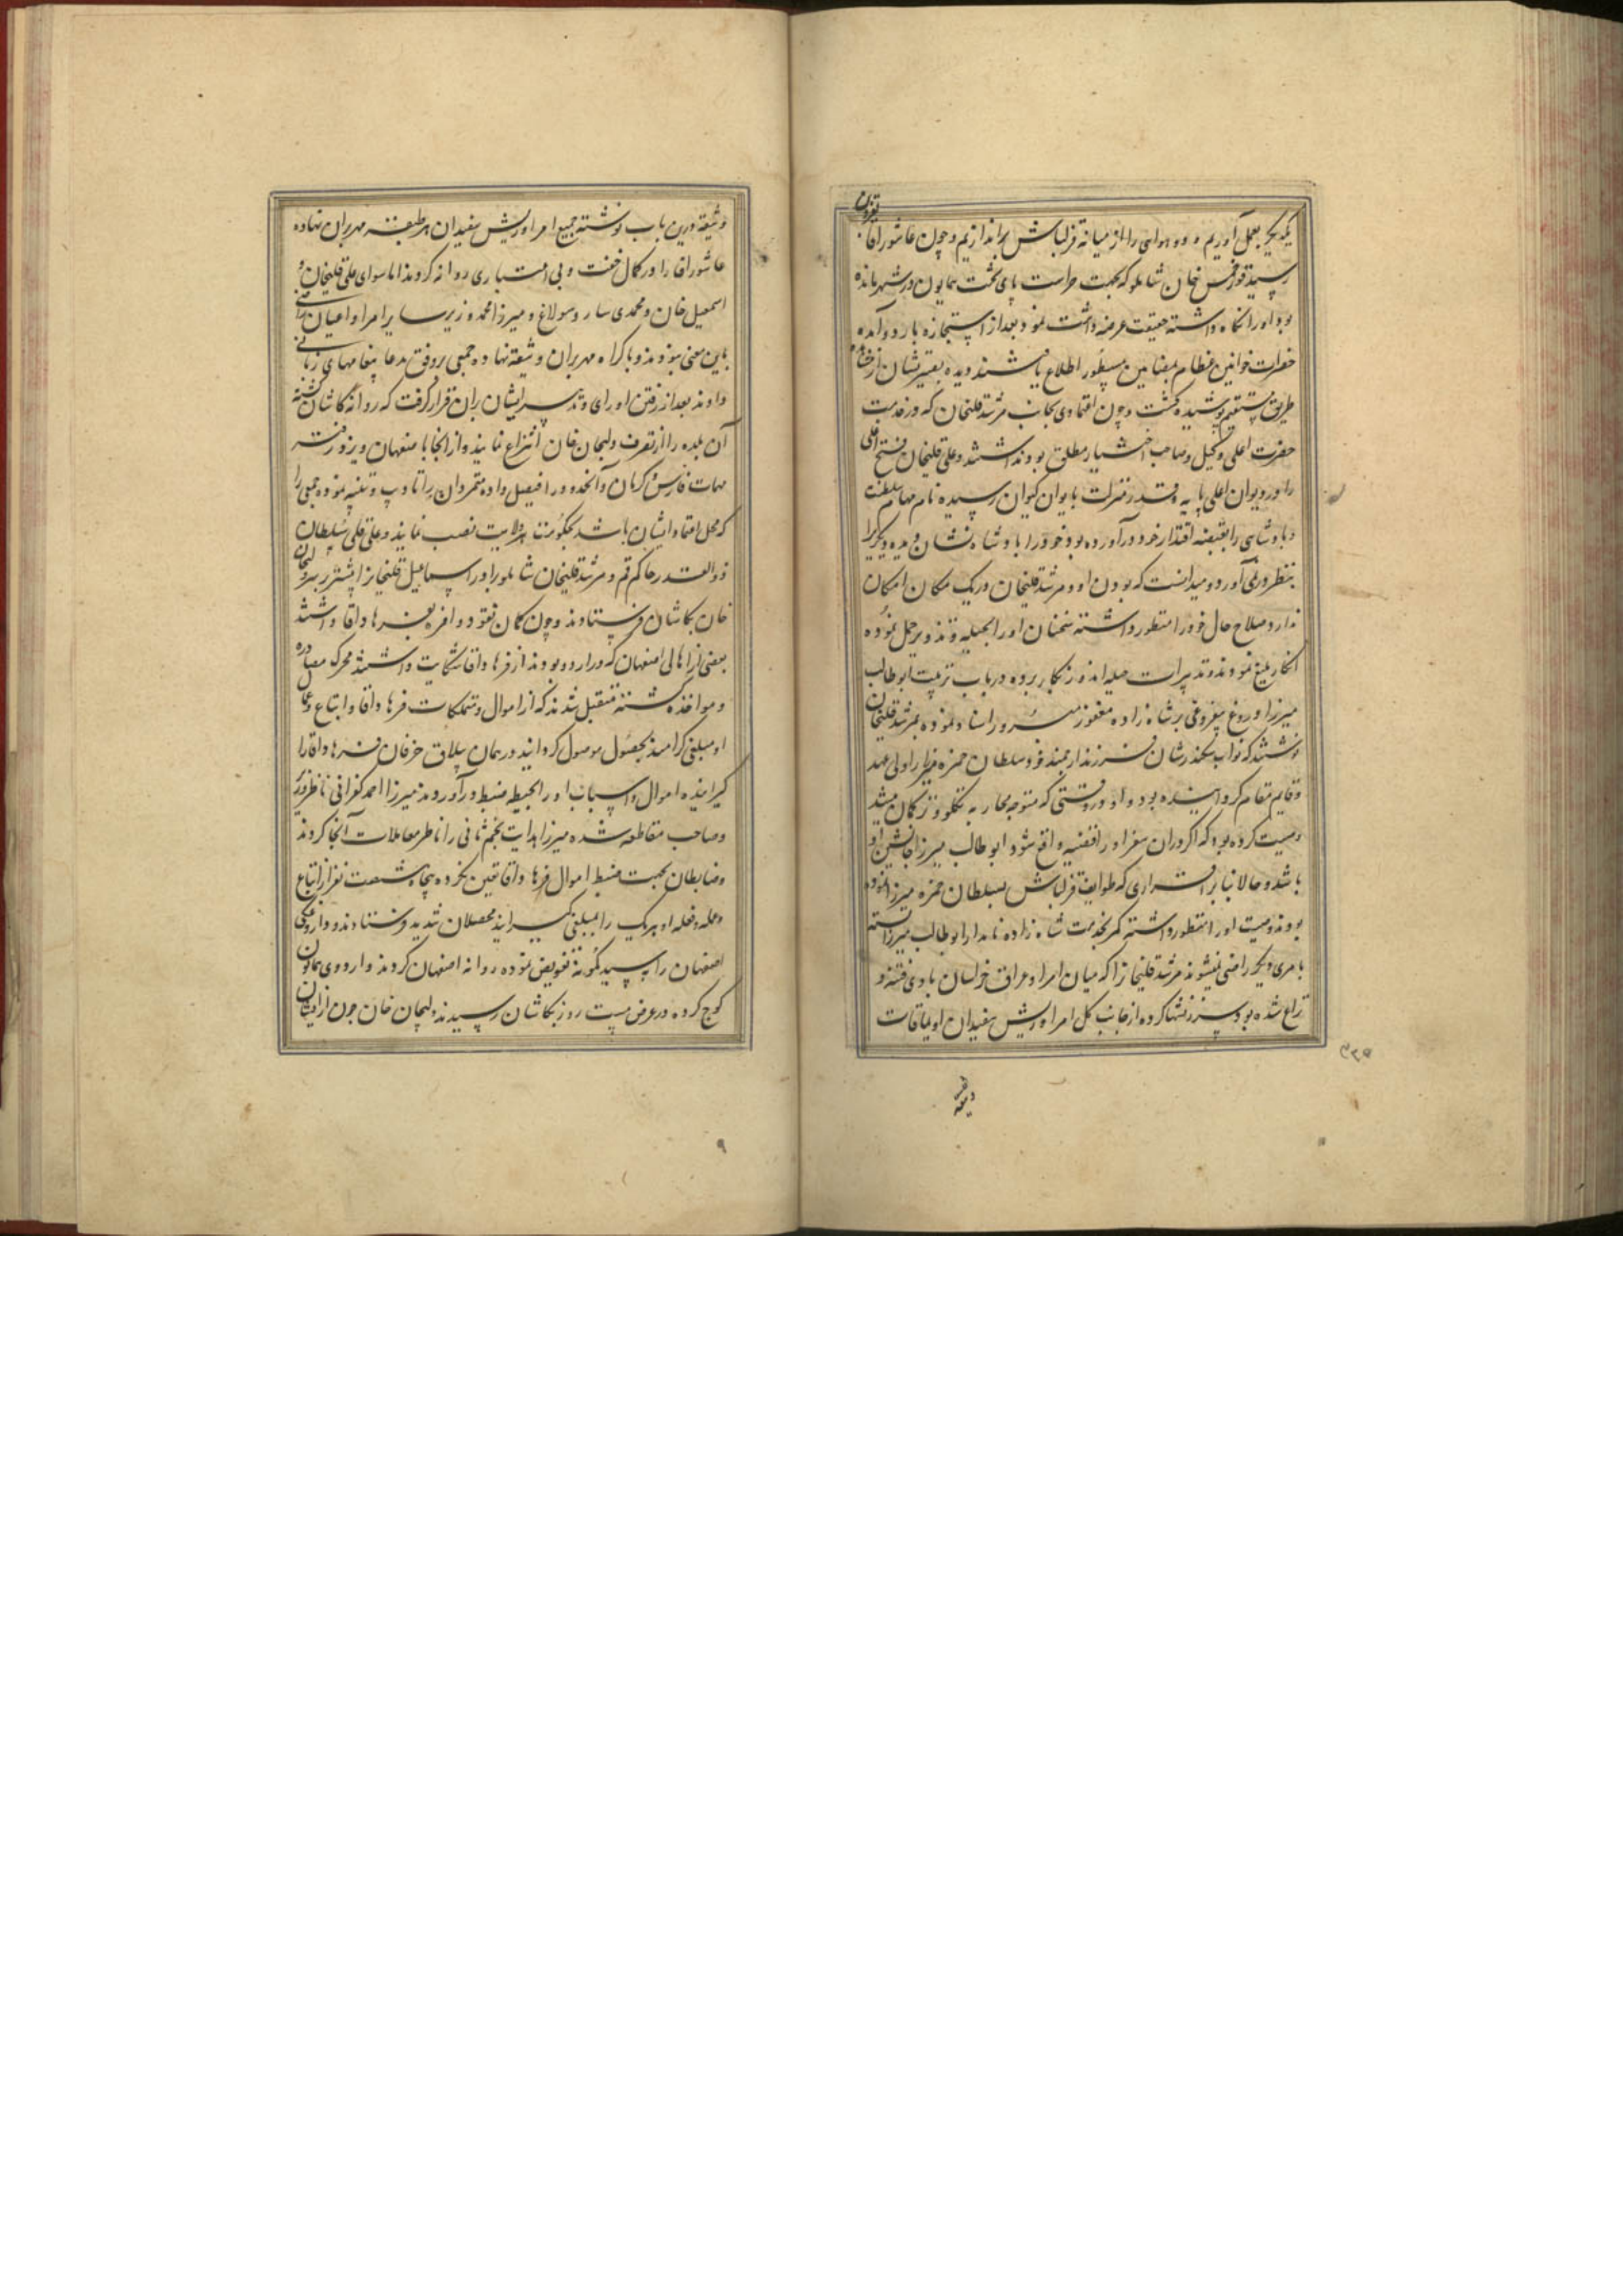 یکدیگر بعمل آوریم و دو هوایی را از میانه قزلباش براندازیم و چون عاشور آقا بقزوین
رسید قورخمس خان شاملو که بجهت حراست پای تخت همایون در شهر مانده
بود او را نگاه داشته حقیقت عرضه داشت نمود بعد از استجازه باردو آمده
حضرات خوانین عظام بمضامین مسطور اطلاع یافتند دیده بصیرتشان از مشاهده
طریق مستقیم پوشیده گشت و چون اعتمادی بجانب مرشد قلیخان که در خدمت
حضرت اعلی وکیل و صاحب اختیار مطلق بود نداشتند و علی قلیخان فتح اغلی
را در دیوان اعلی پایه قدر و منزلت بایوان کیوان رسیده تمام مهام سلطنت
و پادشاهی را بقبضه اقتدار خود درآورده بود و خود را پادشاه نشان دیده دیگری را
بنظر در نمی‌آورد و میدانست که بودن او و مرشد قلیخان در یک مکان امکان
ندارد صلاح حال خود را منظور داشته سخنان او را بحیله و تزویر حمل نموده
انکار بلیغ نمودند و تدبیرات حیله اندوز بکار برده در باب تربیت ابوطالب
میرزا دروغ بیفروغی بر شاه زاده مغفور مبرور اسناد نموده بمرشد قلیخان
نوشتند که نواب سکندرشان فرزند ارجمند خود سلطان حمزه میرزا را ولی عهد
و قایم مقام گردانیده بود و او در وقتی که متوجه محاربه تکلو و ترکمان میشد
وصیت کرده بود که اگر در آن سفر او را قضیه واقع شود ابوطالب میرزا جانشین او
باشد و حالا بنا بر اقراری که طوایف قزلباش بسلطان حمزه میرزا نموده
بودند وصیت او را منظور داشته کمر بخدمت شاه زاده نامدار ابوطالب میرزا بسته
بامری دیگر راضی نمیشوند مرشد قلیخان را که میان امرا و عراق خراسان بادی فتنه و
نزاع شده بود سرزنشها کرده از جانب کل امرا و ریش سفیدان اویماقات
وثیقه
۳۲۵
وثیقه درین باب نوشته جمیع امرا و ریش سفیدان هر طبقه مهر بران نهاده
عاشور آقا را در کمال خفت و بی اعتباری روانه کردند اما سوای علی قلیخان و
اسمعیل خان و محمدی ساروسولاغ و میرزا محمد وزیر سایر امرا و اعیان راضی
باین معنی نبودند و باکراه مهر بران وثیقه نهاده جمعی بر وفق مدعا پیغامهای زبانی
دادند بعد از رفتن او رای و تدبیر ایشان بران قرار گرفت که روانه کاشان گشته
آن بلده را از تصرف ولیجان خان انتزاع نمایند و از انجا باصفهان و یزد رفته
مهمات فارس و کرمان و آنحدود را فیصل داده متمردان را تادیب و تنبیه نموده جمعی را
که محل اعتماد ایشان باشد بحکومت هر ولایت نصب نمایند و علی قلی سلطان
ذوالقدر حاکم قم و مرشد قلیخان شاملو برادر اسماعیل قلیخان را پیشتر بر سر ولیجان
خان بکاشان فرستادند و چون گمان نقود وافره بفرهاد آقا داشتند
بعضی از اهالی اصفهان که در اردو بودند از فرهاد آقا شکایت داشتند محرک مصادره
و مواخذه گشته متقبل شدند که از اموال و متملکات فرهاد آقا و اتباع و عمال
او مبلغی گرامند بحصول موصول گردانند در همان ییلاق خرقان فرهاد آقا را
گیرانیده اموال و اسباب او را بحیطه ضبط درآوردند میرزا احمد کفرانی ناظر وزیر
و صاحب مقاطعه شده میرزا هدایت نجم ثانی را ناظر معاملات آنجا کردند
و ضابطان بجهت ضبط اموال فرهاد آقا تعیین کرده پنجاه و شصت نفر از اتباع
و عمله و فعله او هر یک را بمبلغی گیرانید محصلان شدید فرستادند و داروغگی
اصفهان را به تفویض نموده روانه اصفهان کردند و اردوی همایون
کوچ کرده در عرض بیست روز بکاشان رسیدند ولیجان خان چون از ایشان
۹